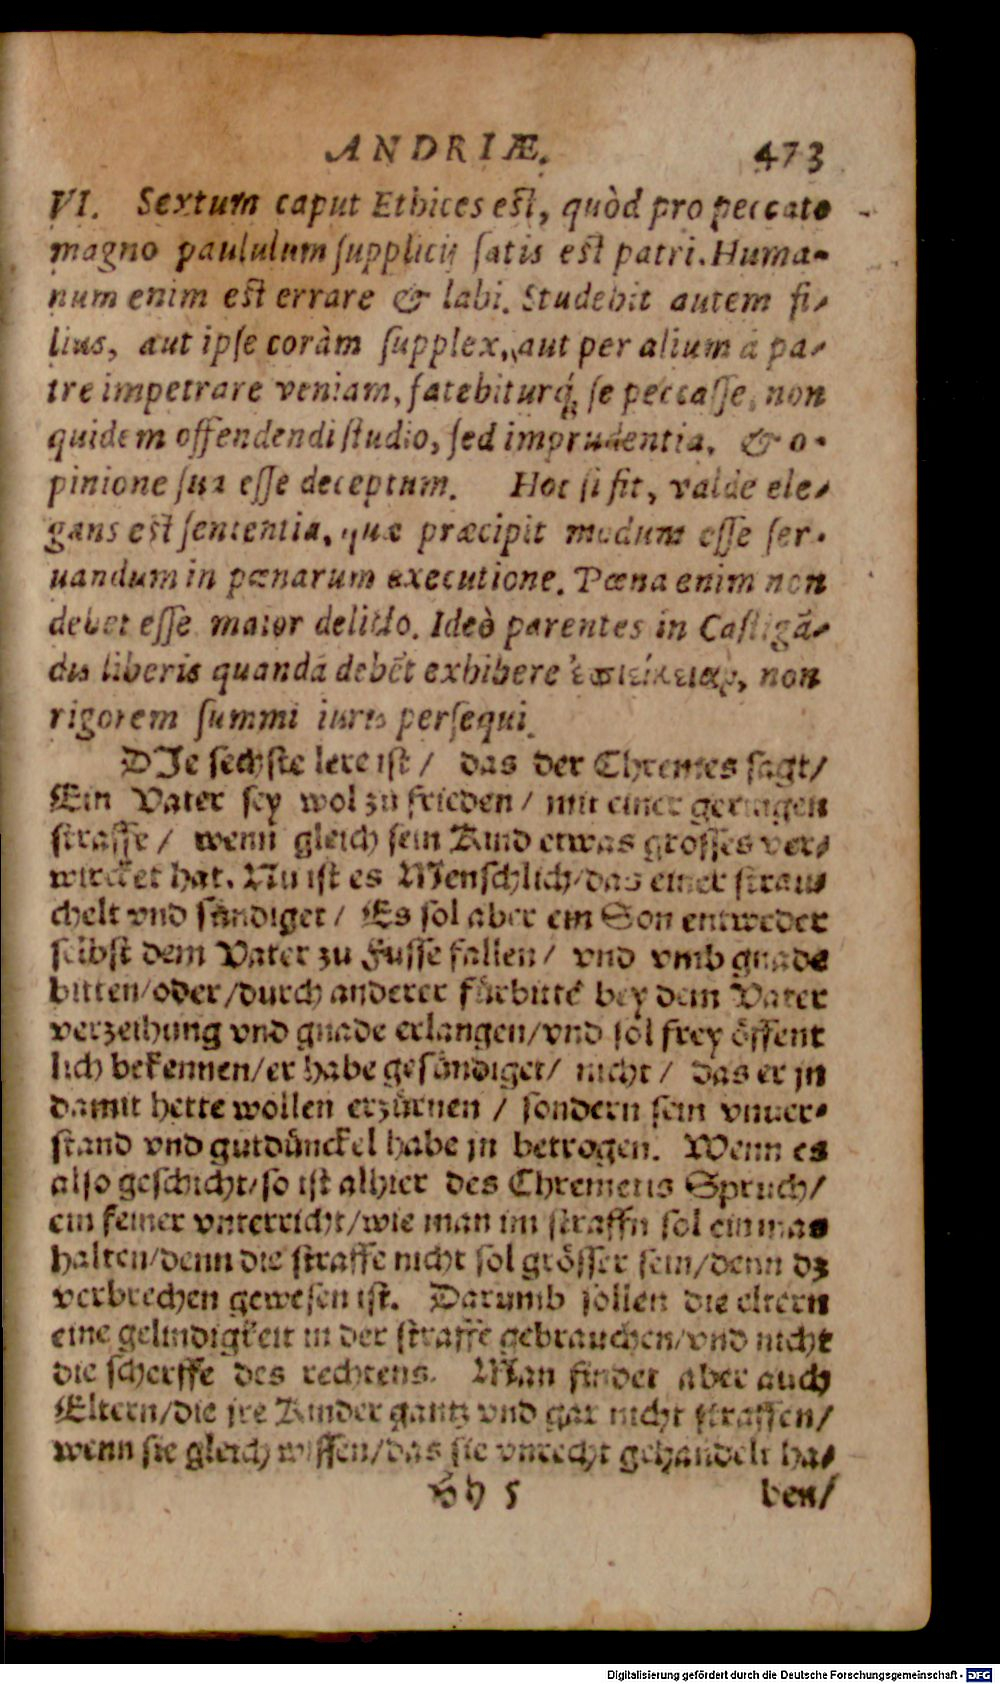 ANDRIÆ. 473
VI. Sextum caput Ethices est, quòd pro peccato
magno paululum supplicij satis est patri. Huma-
num enim est errare & labi. Studebit autem fi-
lius, aut ipse coràm supplex, aut per alium à pa-
tre impetrare veniam, fatebiturq́; se peccasse, non
quidem offendendi studio, sed imprudentia, & o-
pinione sua esse deceptum. Hoc si fit, valde ele-
gans est sententia, quæ præcipit modum esse ser-
uandum in pœnarum executione. Pœna enim non
debet esse maior delicto. Ideò parentes in Castigã-
dis liberis quandã debẽt exhibere ἐπιείκειαν, non
rigorem summi iuris persequi.
DIe sechste lere ist / das der Chremes sagt/
Ein Vater sey wol zu frieden / mit einer geringen
straffe / wenn gleich sein Kind etwas grosses ver-
wircket hat. Nu ist es Menschlich/das einer strau-
chelt vnd sündiget / Es sol aber ein Son entweder
selbst dem Vater zu Fusse fallen / vnd vmb gnade
bitten/oder/durch anderer fürbitte bey dem Vater
verzeihung vnd gnade erlangen/vnd sol frey öffent
lich bekennen/er habe gesündiget/ nicht / das er jn
damit hette wollen erzürnen / sondern sein vnuer-
stand vnd gutdünckel habe jn betrogen. Wenn es
also geschicht/so ist alhier des Chremetis Spruch/
ein feiner vnterricht/wie man im straffn sol ein mas
halten/denn die straffe nicht sol grösser sein/denn dz
verbrechen gewesen ist. Darumb sollen die eltern
eine gelindigkeit in der straffe gebrauchen/vnd nicht
die scherffe des rechtens. Man findet aber auch
Eltern/die jre Kinder gantz vnd gar nicht straffen/
wenn sie gleich wissen/das sie vnrecht gehandelt ha-
Hh 5 ben/
Digitalisierung gefördert durch die Deutsche Forschungsgemeinschaft - DFG